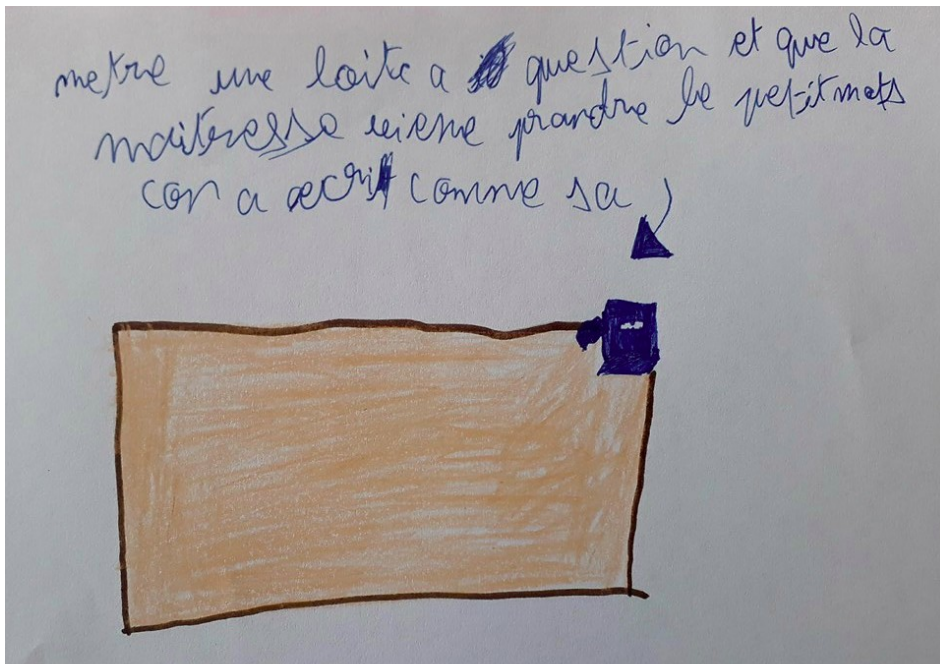 metre une boite a question et que la
maitresse viene prandre le petit mots
con a ecrit comme sa